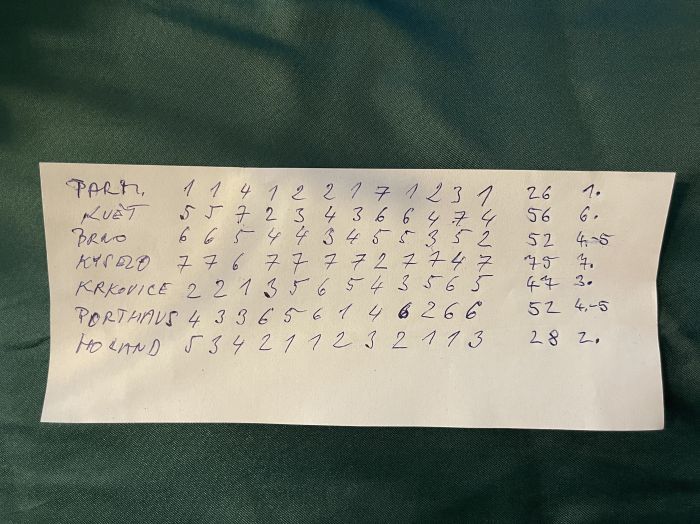 PARM. 1 1 4 1 2 2 1 7 1 2 3 1 26 1.
KVĚT 5 5 7 2 3 4 3 6 6 4 7 4 56 6.
BRNO 6 6 5 4 4 3 4 5 5 3 5 2 52 4.-5
KYSELO 7 7 6 7 7 7 7 2 7 7 4 7 75 7.
KRKOVICE 2 2 1 3 5 6 5 4 3 5 6 5 47 3.
PORTHAUS 4 3 3 6 5 6 1 4 6 2 6 6 52 4.-5
HOLAND 5 3 4 2 1 1 2 3 2 1 1 3 28 2.